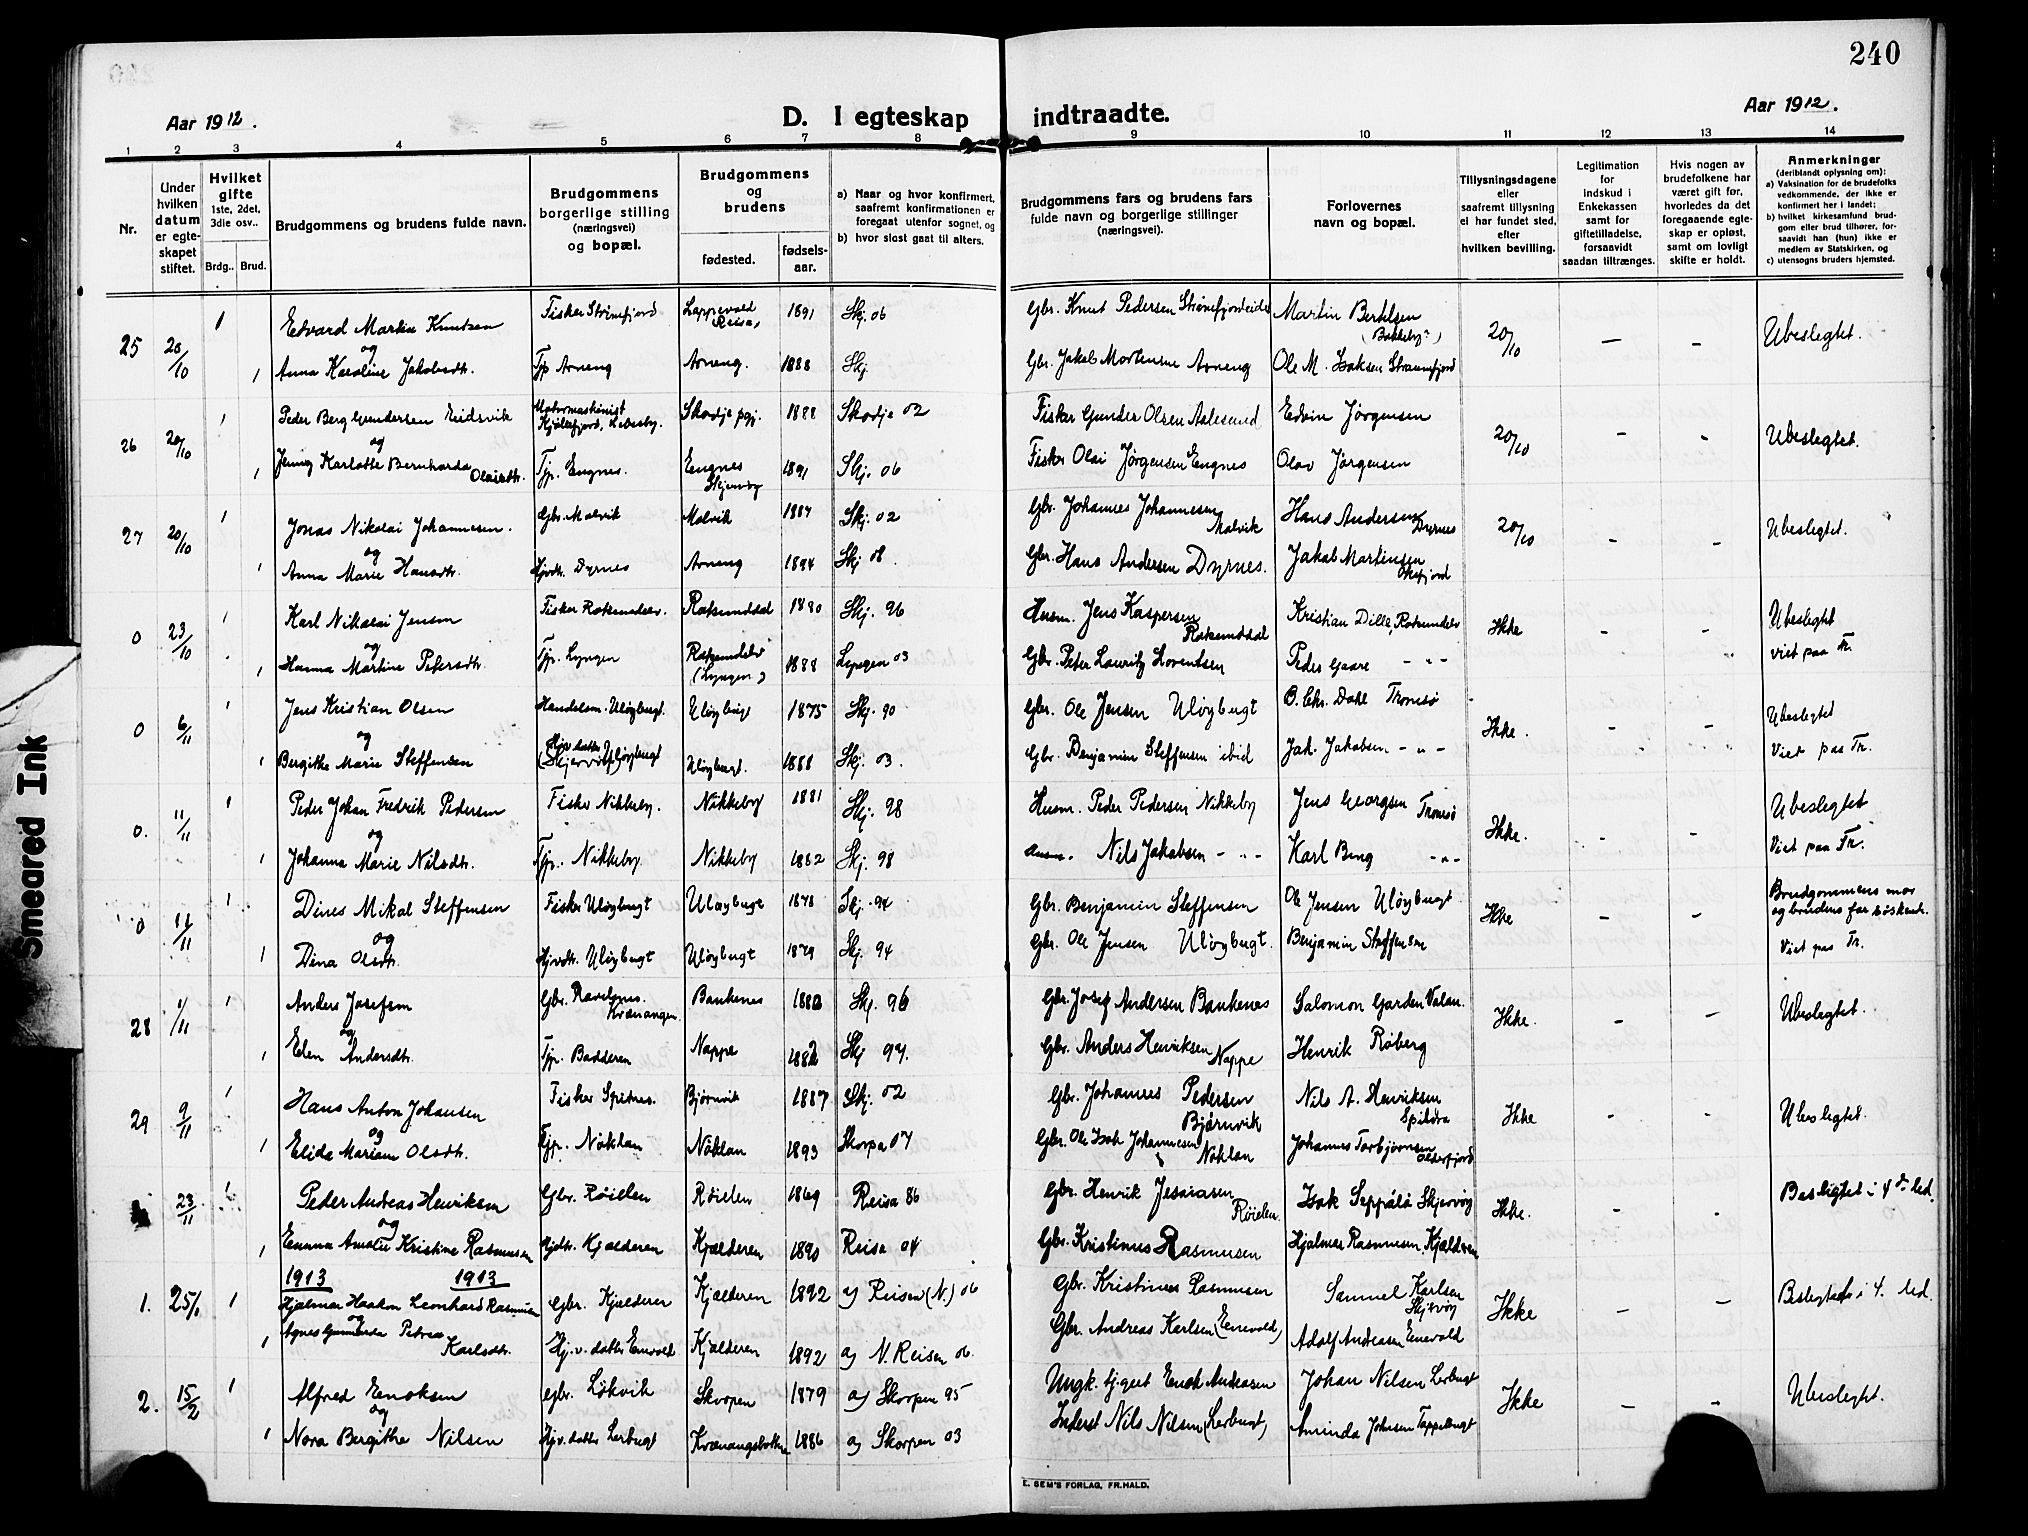 240
Aar 1912.
D. I egteskap indtraadte.
Aar 1912.
1 2 3 4 5 6 7 8 9 10 11 12 13 14
Nr.
Under hvilken datum er egteskapet stiftet.
Hvilket gifte 1ste, 2det, 3die osv..
Brdg.. Brud.
Brudgommens og brudens fulde navn.
Brudgommens borgerlige stilling (næringsvei) og bopæl.
Brudgommens og brudens
fødested.
fødselsaar.
a) Naar og hvor konfirmert, saafremt konfirmationen er foregaat utenfor sognet, og
b) hvor sidst gaat til alters.
Brudgommens fars og brudens fars fulde navn og borgerlige stillinger (næringsvei).
Forlovernes navn og bopæl.
Tillysningsdagene eller saafremt tillysning ei har fundet sted, efter hvilken bevilling.
Legitimation for indskud i Enkekassen samt for giftetilladelse, forsaavidt saadan tiltrænges.
Hvis nogen av brudefolkene har været gift før, hvorledes da det foregaaende egteskap er opløst, samt om lovligt skifte er holdt.
Anmerkninger (deriblandt oplysning om):
a) Vaksination for de brudefolks vedkommende, der ikke er konfirmert her i landet;
b) hvilket kirkesamfund brudgom eller brud tilhører, forsaavidt han (hun) ikke er medlem av Statskirken, og
c) utensogns bruders hjemsted.
25 20/10 1 Edvard Martin Knutsen Fisker Strømfjord Lappevold Reisa, 1891 Skj. 06 Gbr. Knut Pedersen Strømfjordeidet Martin Bertelsen (Bakkeby) 20/10 — — Ubeslegtet.
og
1 Anna Karoline Jakobsdtr. Tjp Arneng Arneng. 1888 Skj. Gbr. Jakob Mortensen Arneng Ole M. Isaksen Straumfjord
26 20/10 1 Peder Berg Gundersen Eidsvik Motormaskinist Kjøllefjord, Lebesby. Skodje pgj. 1888 Skodje 02 Fisker Gunder Olsen Aalesund Edvin Jørgensen 20/10 - - Ubeslegtet.
og
1 Jenny Karlotte Bernharda Olaisdtr. Tjp. Engnes. Engnes Skjervøy 1891 Skj. 06 Fisker Olai Jørgensen Engnes Olav Jørgensen
27 20/10 1 Jonas Nikolai Johannesen. Gbr. Malvik Malvik 1884 Skj. 02 Gbr. Johannes Johannesen Malvik Hans Andersen Dyrnes 20/10 - - Ubeslegtet.
og
1 Anna Marie Hansdtr. Hjvdtr. Dyrnes Arneng 1894 Skj 08. Gbr. Hans Andersen Dyrnes. Jakob Martinsen
0 23/10 1 Karl Nikolai Jensen Fisker Rotsundelv. Rotsunddal 1880 Skj. 96 Husm. Jens Kaspersen Rotsunddal Kristian Dille, Rotsundelv Ikke - - Ubeslegtet
og
1 Hanna Martine Petersdtr. Tjp. Lyngen Rotsundelv (Lyngen) 1888 Lyngen 03 Gbr. Peter Lauritz Lorentsen Peder Gaare - " - viet paa Tr.
0 6/11 1 Jens Kristian Olsen Handelsm. Uløybugt. Uløybugt 1875 Skj. 90 Gbr. Ole Jensen Uløybugt O. Chr. Dahl Tromsø Ikke. - - Ubeslegtet
og
1 Bergithe Marie Steffensen (Skjervøy) Uløybugt Uløybugt. 1888 Skj. 03. Gbr. Benjamin Steffensen ibid Jak. Jakobsen - " - Viet paa Tr.
0. 11/11 1 Peder Johan Fredrik Pedersen Fisker Nikkeby. Nikkeby 1881 Skj. 98 Husm. Peder Pedersen Nikkeby Jens Georgsen Tromsø Ikke. - - Ubeslegtet
og
1 Johanna Marie Nilsdtr. Tjp. Nikkeby. Nikkeby 1882 Skj. 98 Husm. Nils Jakobsen - " - Karl Bing - " - Viet paa Tr.
0 11/11 1 Dines Mikal Steffensen Fisker Uløybugt Uløybugt 1878 Skj. 94 Gbr. Benjamin Steffensen Ole Jensen Uløybugt Ikke - - Brudgommens mor
og brudens far søskende.
og
1 Dina Olsdtr. Hjvdtr. Uløybugt Uløybugt 1879 Skj. 94 Gbr. Ole Jensen Uløybugt. Benjamin Steffensen Viet paa Tr.
28 1/11 1 Anders Josefsen Gbr. Kvænangen. Bankenes 1882 Skj. 96 Gbr. Josef Andersen Bankenes Salomon Garden Valan. Ikke. - - Ubeslegtet.
og
1 Elen Andersdtr. Tjp. Badderen Nappe 1882 Skj 97. Gbr. Anders Henriksen Nappe Henrik Røberg
29 9/11 1 Hans Anton Johansen Fisker Spildra. Bjørnvik 1887 Skj. 02 Gbr. Johannes Pedersen Bjørnvik Nils A. Henriksen Spildra Ikke - - Ubeslegtet.
og
1 Elida Mariane Olsdtr. Tjp. Nøklan Nøklan 1893 Skorpa 07 Gbr. Ole Isak Johannesen Nøklan Johannes Torbjørnsen Olderfjord
23/11 Peder Andreas Henriksen Gbr. Røielen Røielen 1869 Reisa 86 Gbr. Henrik Jesaiasen Røielen. Isak Seppälä Skjervøy Ikke. - - Beslegtet i 4de led.
og
1 Emma Amalie Kristine Rasmussen Hjdtr. Kjælderen Kjælderen 1890 Reisa 04 Gbr. Kristinus Rasmussen Hjalmar Rasmussen, Kjælderen
1913 1913
1. 25/1 1 Hjalmar Haakon Leonhard Rasmussen Gbr. Kjælderen Kjælderen 1892 a) Reisen (N.) 06 Gbr. Kristinus Rasmussen Samuel Karlsen Skjervøy Ikke — — Beslegtede i 4. led.
og
1 Agnes Gunnarda Petrea Karlsdtr. Hj. v. datter Einevold Kjælderen 1892 a) N. Reisen 06. Gbr. Andreas Karlsen (Einevold) Adolf Andreasen Einevold
2. 15/2 1 Alfred Enoksen Gbr. Løkvik Skorpen 1879 a) Skorpen 95 Ungk. tj.gut Enok Andreasen Johan Nilsen Lerbugt Ikke — - Ubeslegtet.
og
1 Nora Bergithe Nilsen Hjv. datter Lerbugt Kvænangsbotten 1886 a) Skorpen 03 Inderst Nils Nilsen (Lerbugt) Aminda Johnsen Tappelbugt
E. SEM'S FORLAG, FR.HALD.
Smeared Ink